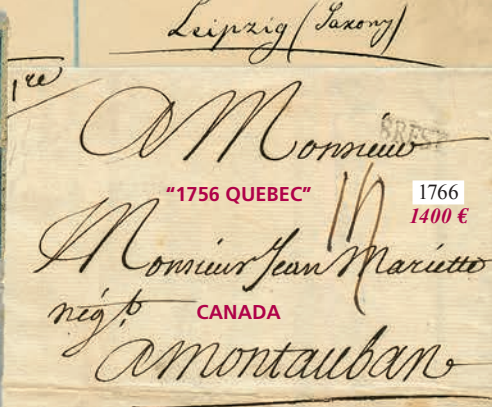 Leipzig (Saxony)
1re
A Monsieur
BREST
"1756 QUEBEC"
1766
1400 €
Monsieur Jean Mariette
négt.
CANADA
A montauban